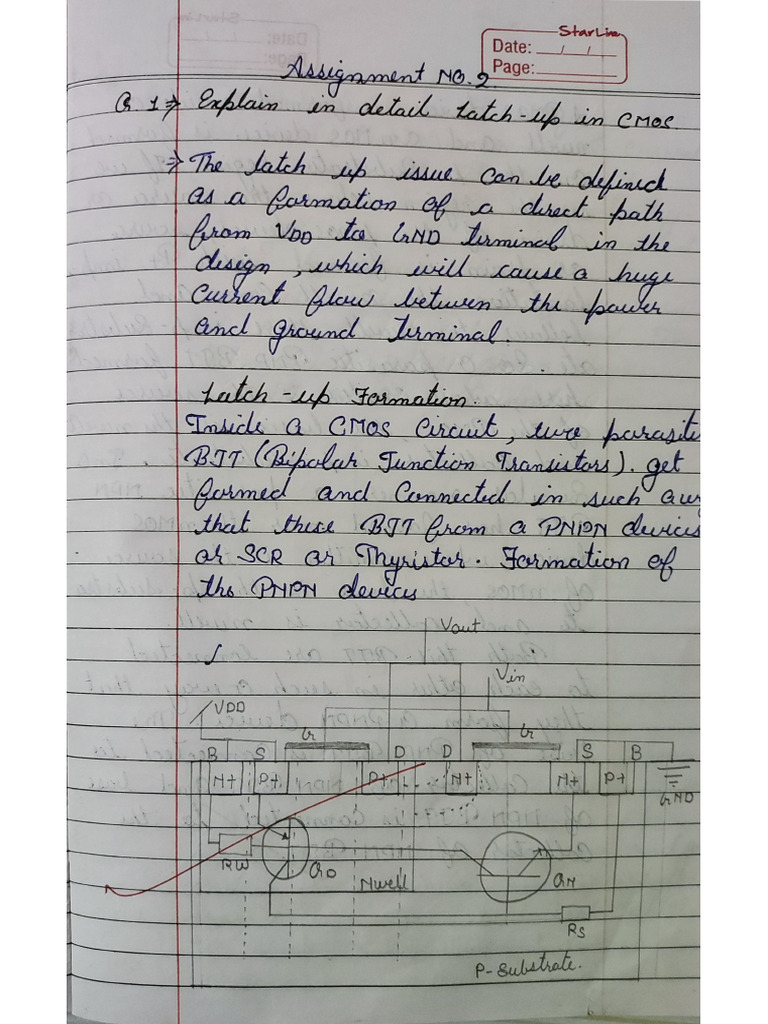 StarLine
Date: __/__/__
Page:
Assignment NO.2
Q.1⇒ Explain in detail Latch-up in CMOS.
⇒ The latch up issue can be defined
as a formation of a direct path
from VDD to GND terminal in the
design, which will cause a huge
Current flow between the power
and ground terminal.
Latch-up Formation.
Inside a CMOS Circuit, two parasite
BJT (Bipolar Junction Transistors). get
formed and Connected in such a
that these BJT from a PNPN devices
or SCR or Thyristor. Formation of
the PNPN devices
Vout
Vin
VDD
G G
B S D D S B
N+ P+ P+ N+ N+ P+
GND
RW
Nwell
QN
RS
P-Substrate.